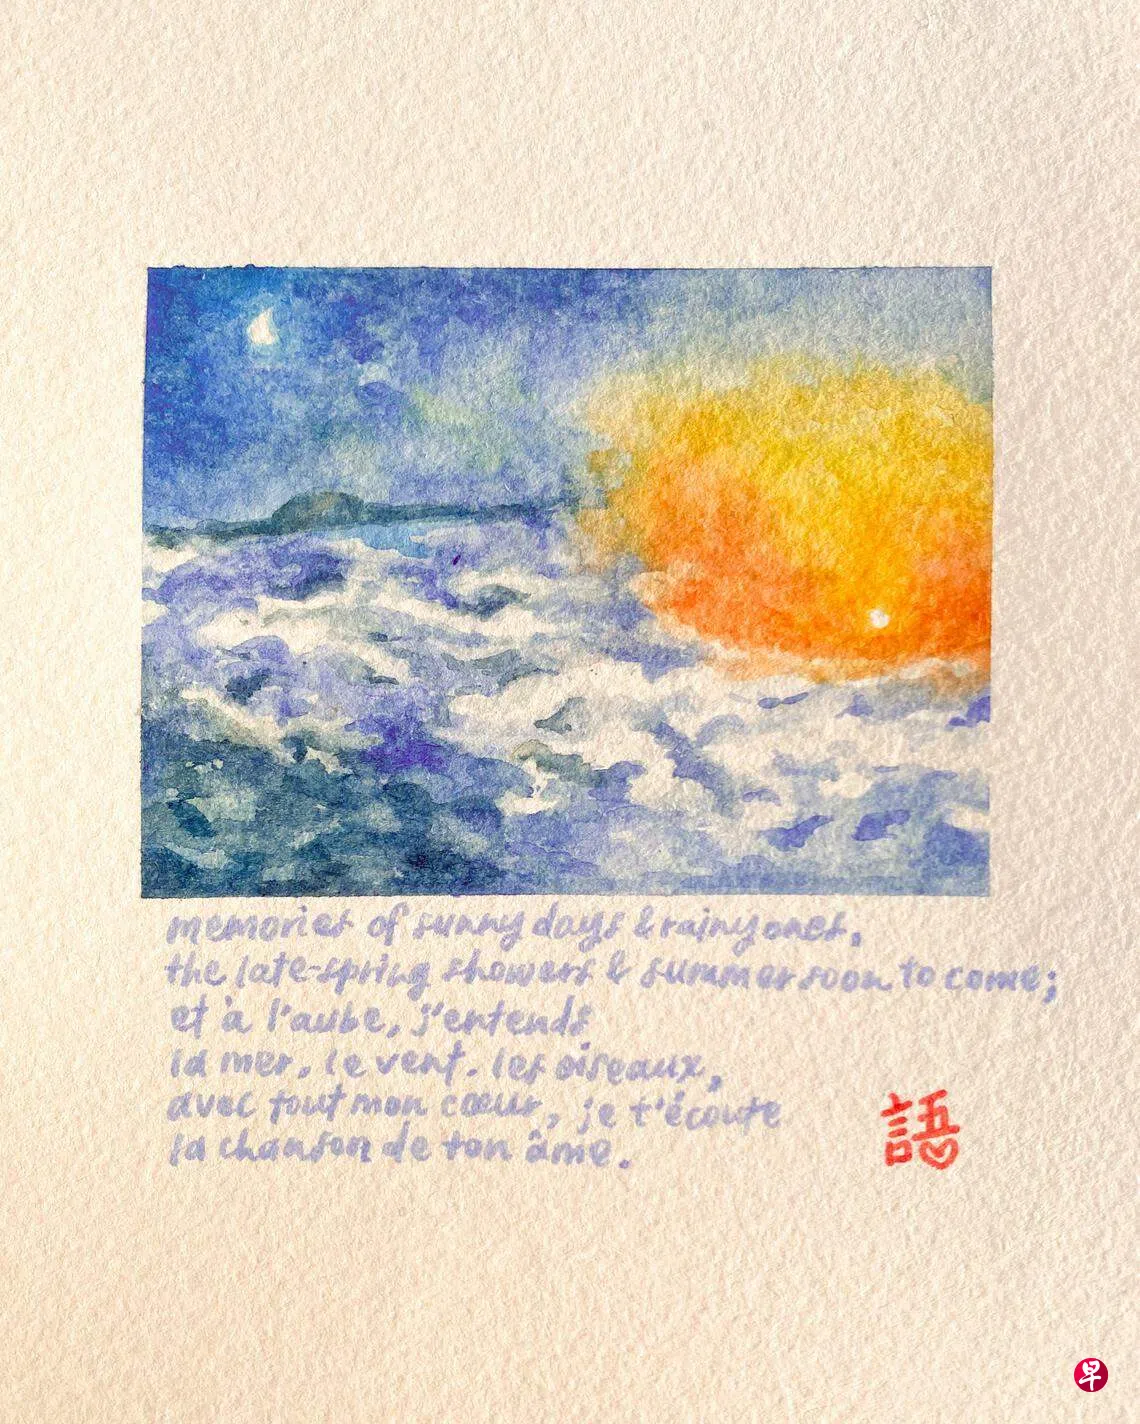 memories of sunny days & rainy ones,
the late-spring showers & summer soon to come;
et à l'aube, j'entends
la mer. le vent. les oiseaux,
avec tout mon cœur, je t'écoute
la chanson de ton âme.
語
早